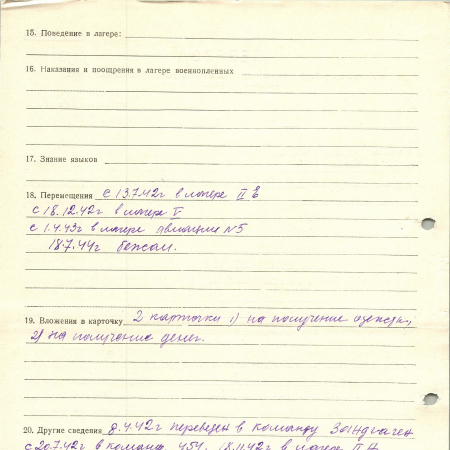 15. Поведение в лагере:
16. Наказания и поощрения в лагере военнопленных
17. Знание языков
18. Перемещения с 13.7.42г в лагере II
с 18.12.42г в лагере V
с 1.4.43г в лагере авиации N5
18.7.44г бежал.
19. Вложения в карточку 2 карточки 1) на получение одежды,
2) на получение денег.
20. Другие сведения 8.4.42г переведен в команду
с 20.7.42г в команд. 454, 18.11.42г в лагере II